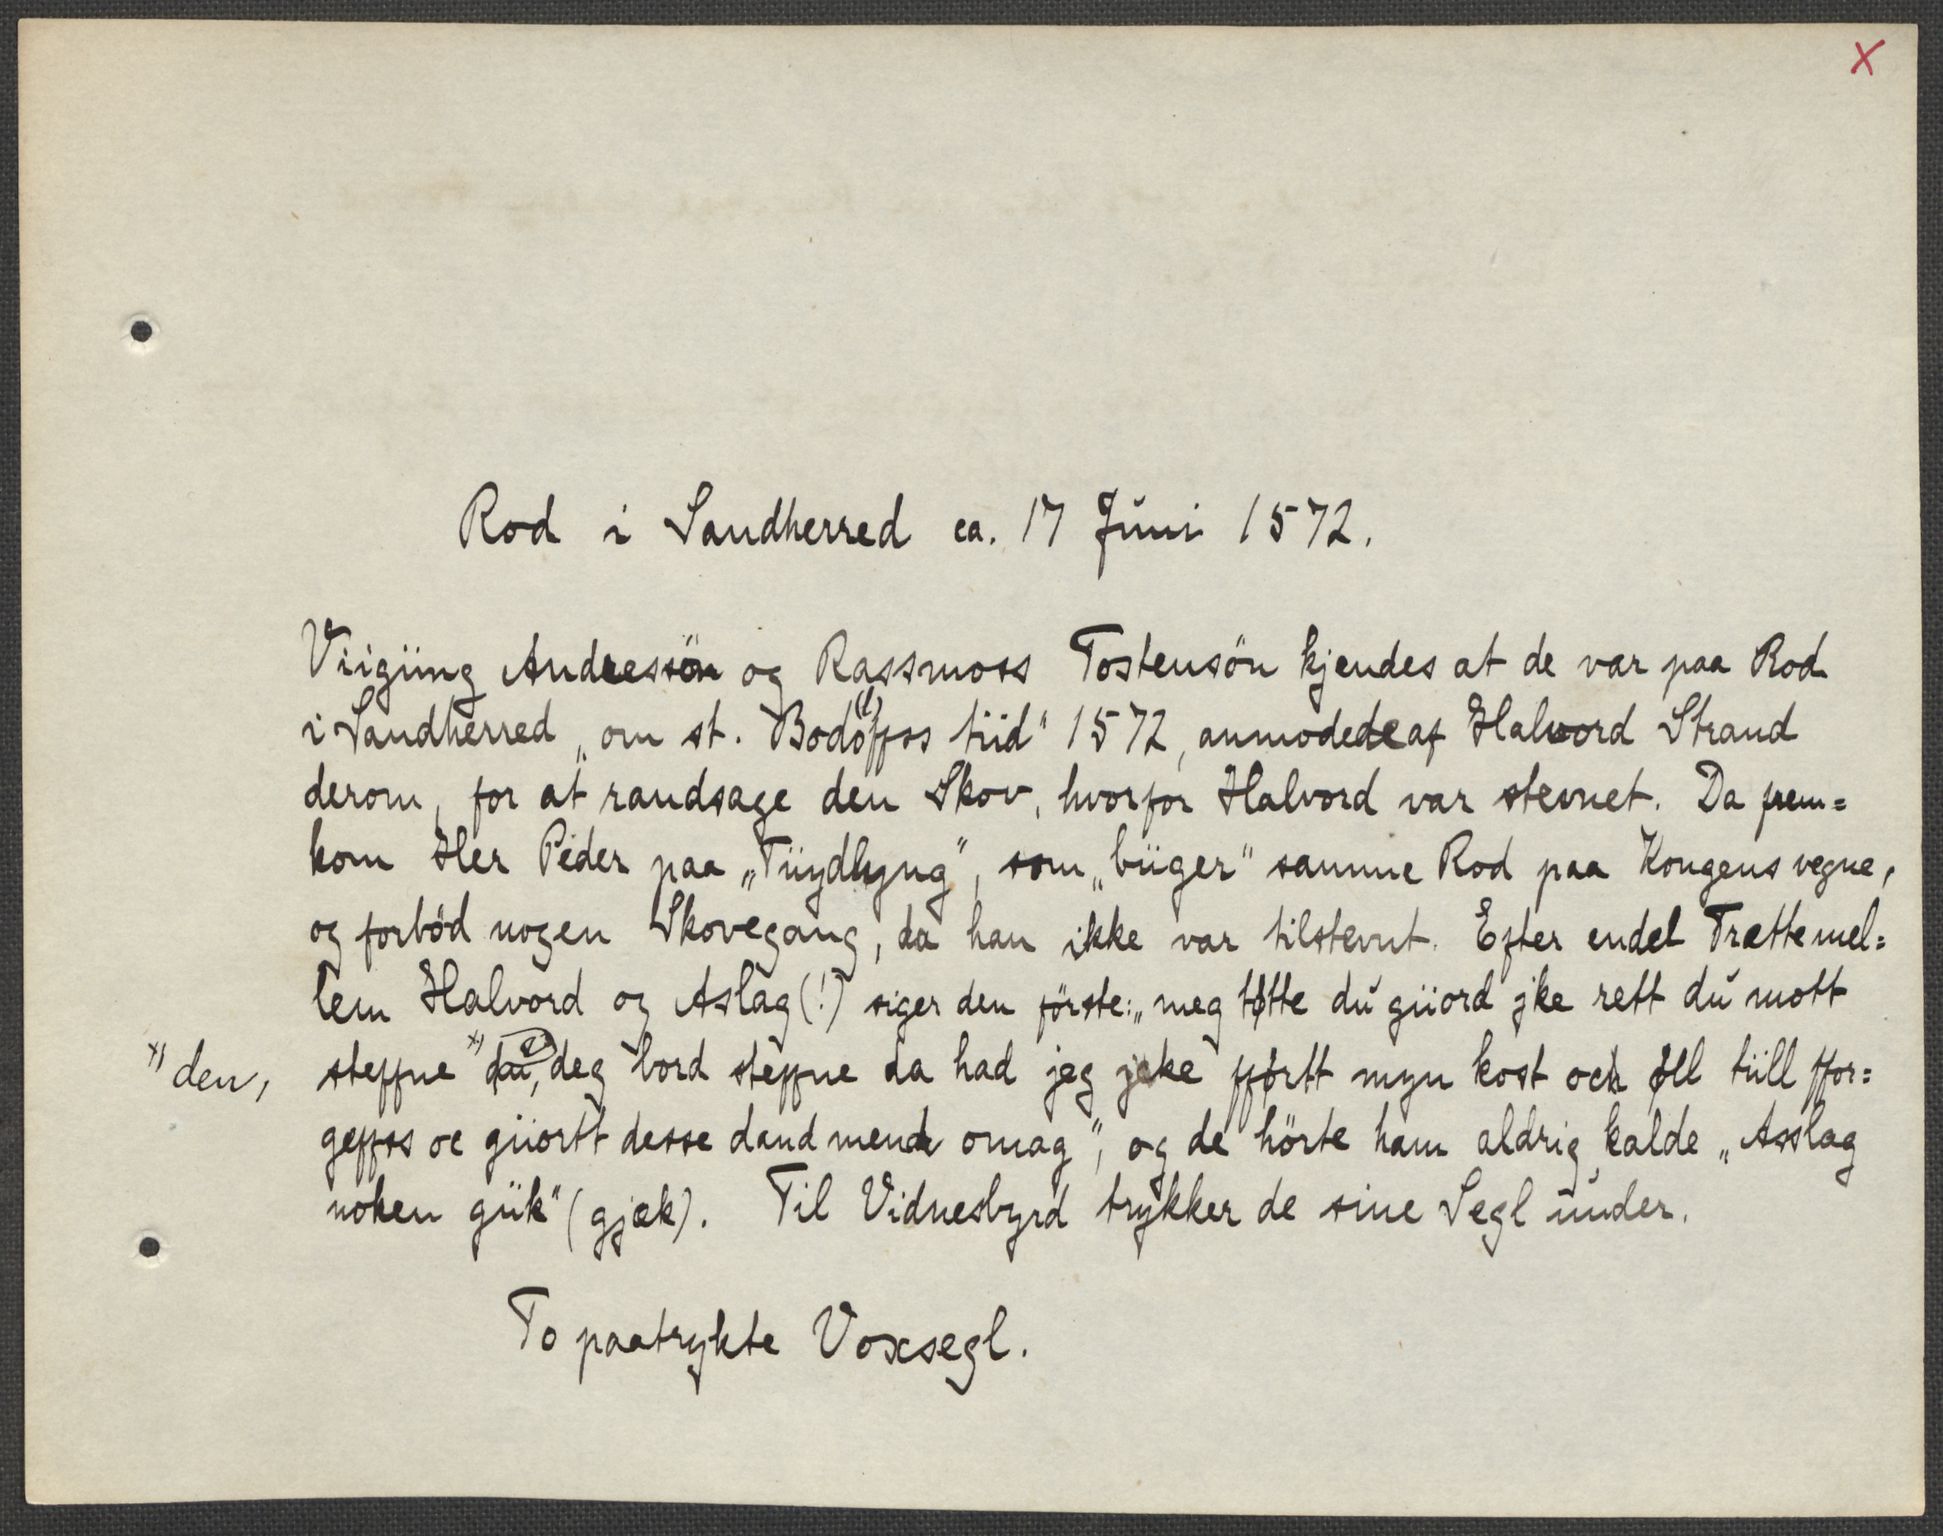 X
Rod i Sandherred ca. 17 Juni 1572.
Viigüng Andressön og Rassmoss Tostensön kjendes at de var paa Rod
i Sandherred „om st. Bodöffss tiid" 1572, anmodede af Halvord Strand
derom, for at randsage den Skov, hvorfor Halvord var stevnet. Da frem=
kom Her Peder paa „Tüydlyng", som „büger" samme Rod paa Kongens vegne,
og forbød nogen Skovegang, da han ikke var tilstevnt. Efter endel Trætte mel=
lem Halvord og Aslag (!) siger den förste: „meg tøtte du giiord jke rett du mott
steffne x) deg bord steffne da had jeg jcke fførtt myn kost och øll tiill ffor=
x) den,
geffss oc giiortt desse dand mend omag", og de hörte ham aldrig kalde „Asslag
noken gük" (gjæk). Til Vidnesbyrd trykker de sine Segl under.
To paatrykte Voxsegl.